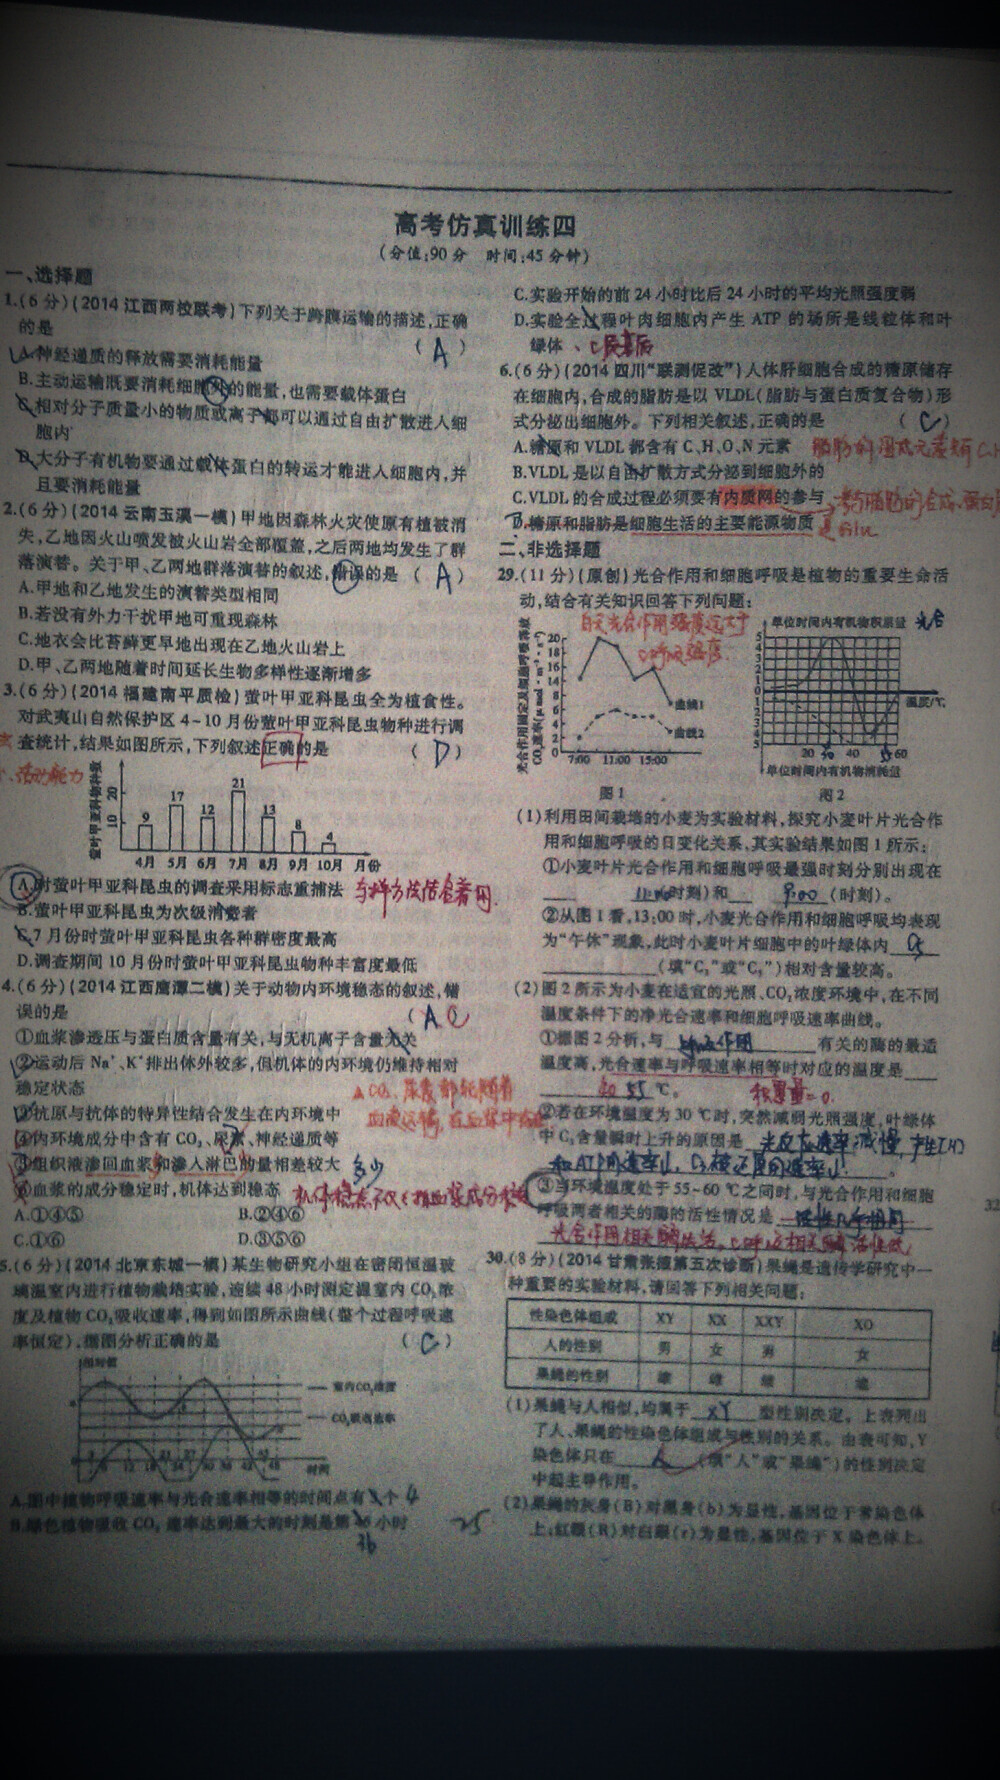 高考仿真训练四
(分值:90分 时间:45分钟)
一、选择题
1.(6分)(2014江西两校联考)下列关于跨膜运输的描述,正确
的是 ( A )
A.神经递质的释放需要消耗能量
B.主动运输既要消耗细胞外的能量,也需要载体蛋白
C.相对分子质量小的物质或离子都可以通过自由扩散进入细
胞内
D.大分子有机物要通过载体蛋白的转运才能进入细胞内,并
且要消耗能量
2.(6分)(2014云南玉溪一模)甲地因森林火灾使原有植被消
失,乙地因火山喷发被火山岩全部覆盖,之后两地均发生了群
落演替。关于甲、乙两地群落演替的叙述,错误的是 ( A )
A.甲地和乙地发生的演替类型相同
B.若没有外力干扰甲地可重现森林
C.地衣会比苔藓更早地出现在乙地火山岩上
D.甲、乙两地随着时间延长生物多样性逐渐增多
3.(6分)(2014福建南平质检)萤叶甲亚科昆虫全为植食性。
对武夷山自然保护区4~10月份萤叶甲亚科昆虫物种进行调
查统计,结果如图所示,下列叙述正确的是 ( D )
活动能力
20
10
9 17 12 21 13 8 4
4月 5月 6月 7月 8月 9月 10月 月份
A.对萤叶甲亚科昆虫的调查采用标志重捕法
B.萤叶甲亚科昆虫为次级消费者
C.7月份时萤叶甲亚科昆虫各种群密度最高
D.调查期间10月份时萤叶甲亚科昆虫物种丰富度最低
4.(6分)(2014江西鹰潭二模)关于动物内环境稳态的叙述,错
误的是 ( A C )
①血浆渗透压与蛋白质含量有关,与无机离子含量无关
②运动后Na⁺、K⁺排出体外较多,但机体的内环境仍维持相对
稳定状态
③抗原与抗体的特异性结合发生在内环境中
④内环境成分中含有CO₂、尿素、神经递质等
⑤组织液渗回血浆和渗入淋巴的量相差较大 多少
⑥血浆的成分稳定时,机体达到稳态
A.①④⑤ B.②④⑥
C.①⑥ D.③⑤⑥
5.(6分)(2014北京东城一模)某生物研究小组在密闭恒温玻
璃温室内进行植物栽培实验,连续48小时测定温室内CO₂浓
度及植物CO₂吸收速率,得到如图所示曲线(整个过程呼吸速
率恒定),据图分析正确的是 ( C )
相对值
室内CO₂浓度
CO₂吸收速率
时间
A.图中植物呼吸速率与光合速率相等的时间点有个 4
B.绿色植物吸收CO₂速率达到最大的时刻是第小时
36
25
C.实验开始的前24小时比后24小时的平均光照强度弱
D.实验全过程叶肉细胞内产生ATP的场所是线粒体和叶
绿体
6.(6分)(2014四川“联测促改”)人体肝细胞合成的糖原储存
在细胞内,合成的脂肪是以VLDL(脂肪与蛋白质复合物)形
式分泌出细胞外。下列相关叙述,正确的是 ( C )
A.糖原和VLDL都含有C、H、O、N元素
B.VLDL是以自由扩散方式分泌到细胞外的
C.VLDL的合成过程必须要有内质网的参与
D.糖原和脂肪是细胞生活的主要能源物质
二、非选择题
29.(11分)(原创)光合作用和细胞呼吸是植物的重要生命活
动,结合有关知识回答下列问题:
白天光合作用强度远大于
呼吸强度
20
18
16
14
8
6
4
2
0
曲线1
曲线2
7:00 11:00 15:00
图1
单位时间内有机物积累量 光合
温度/℃
20 30 40 55 60
单位时间内有机物消耗量
图2
(1)利用田间栽培的小麦为实验材料,探究小麦叶片光合作
用和细胞呼吸的日变化关系,其实验结果如图1所示:
①小麦叶片光合作用和细胞呼吸最强时刻分别出现在
(时刻)和 9:00 (时刻)。
②从图1看,13:00时,小麦光合作用和细胞呼吸均表现
为“午休”现象,此时小麦叶片细胞中的叶绿体内 C₅
(填“C₃”或“C₅”)相对含量较高。
(2)图2所示为小麦在适宜的光照、CO₂浓度环境中,在不同
温度条件下的净光合速率和细胞呼吸速率曲线。
①据图2分析,与 呼吸作用 有关的酶的最适
温度高,光合速率与呼吸速率相等时对应的温度是
55 ℃。 积累量=0
②若在环境温度为30℃时,突然减弱光照强度,叶绿体
中C₃含量瞬时上升的原因是 光反应速率减慢,产生[H]
和ATP的速率小,C₃被还原的速率小。
③当环境温度处于55~60℃之间时,与光合作用和细胞
呼吸两者相关的酶的活性情况是
光合作用相关酶失活,呼吸相关酶活性低
30.(8分)(2014甘肃张掖第五次诊断)果蝇是遗传学研究中一
种重要的实验材料,请回答下列相关问题:
性染色体组成 XY XX XXY XO
人的性别 男 女 男 女
果蝇的性别 雄 雌 雌 雄
(1)果蝇与人相似,均属于 XY 型性别决定。上表列出
了人、果蝇的性染色体组成与性别的关系。由表可知,Y
染色体只在 人 (填“人”或“果蝇”)的性别决定
中起主导作用。
(2)果蝇的灰身(B)对黑身(b)为显性,基因位于常染色体
上;红眼(R)对白眼(r)为显性,基因位于X染色体上。